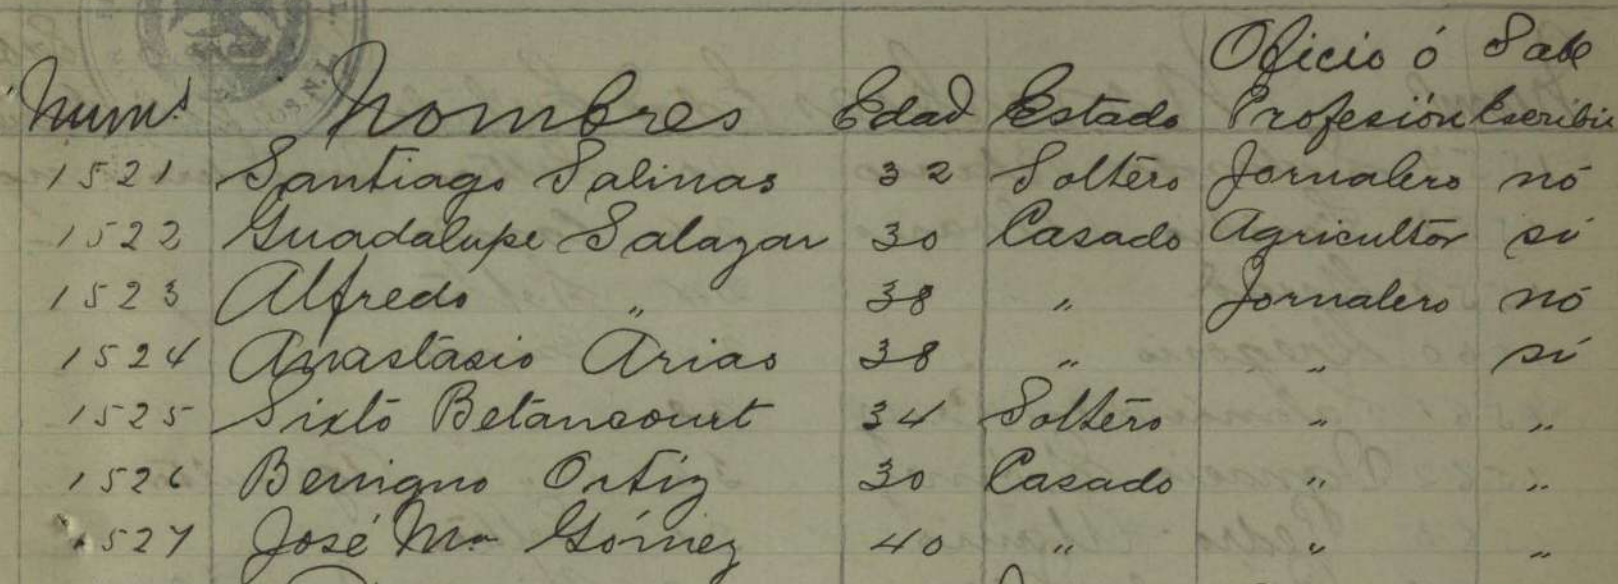 Oficio ó Sabe
Num.s Nombres Edad Estado Profesión Escribir
1521 Santiago Salinas 32 Soltero Jornalero nó
1522 Guadalupe Salazar 30 Casado Agricultor sí
1523 Alfredo " 38 " Jornalero nó
1524 Anastasio Arias 38 " " sí
1525 Sixto Betancourt 34 Soltero " "
1526 Benigno Ortiz 30 Casado " "
1527 José Ma Gómez 40 " " "